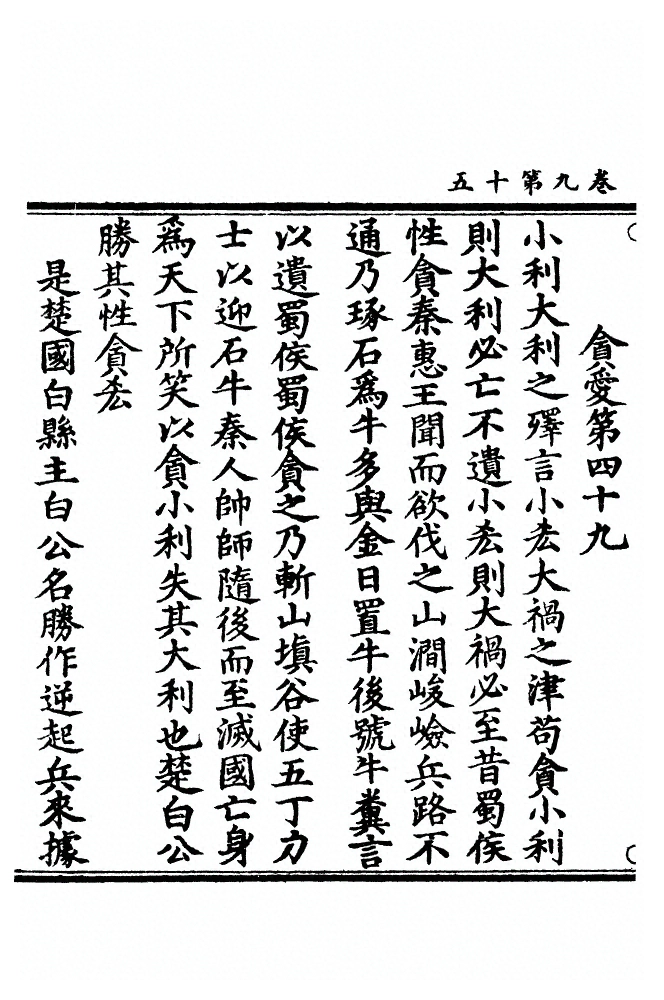 卷九第十五
貪愛第四十九
小利大利之殬言小𠫤大禍之津苟貪小利
則大利必亡不遺小𠫤則大禍必至昔蜀侯
性貪秦惠王聞而欲伐之山澗峻嶮兵路不
通乃琢石爲牛多與金日置牛後號牛糞言
以遺蜀侯蜀侯貪之乃斬山塡谷使五丁力
士以迎石牛秦人帥師隨後而至滅國亡身
爲天下所笑以貪小利失其大利也楚白公
勝其性貪𠫤
是楚國白縣主白公名勝作逆起兵來據